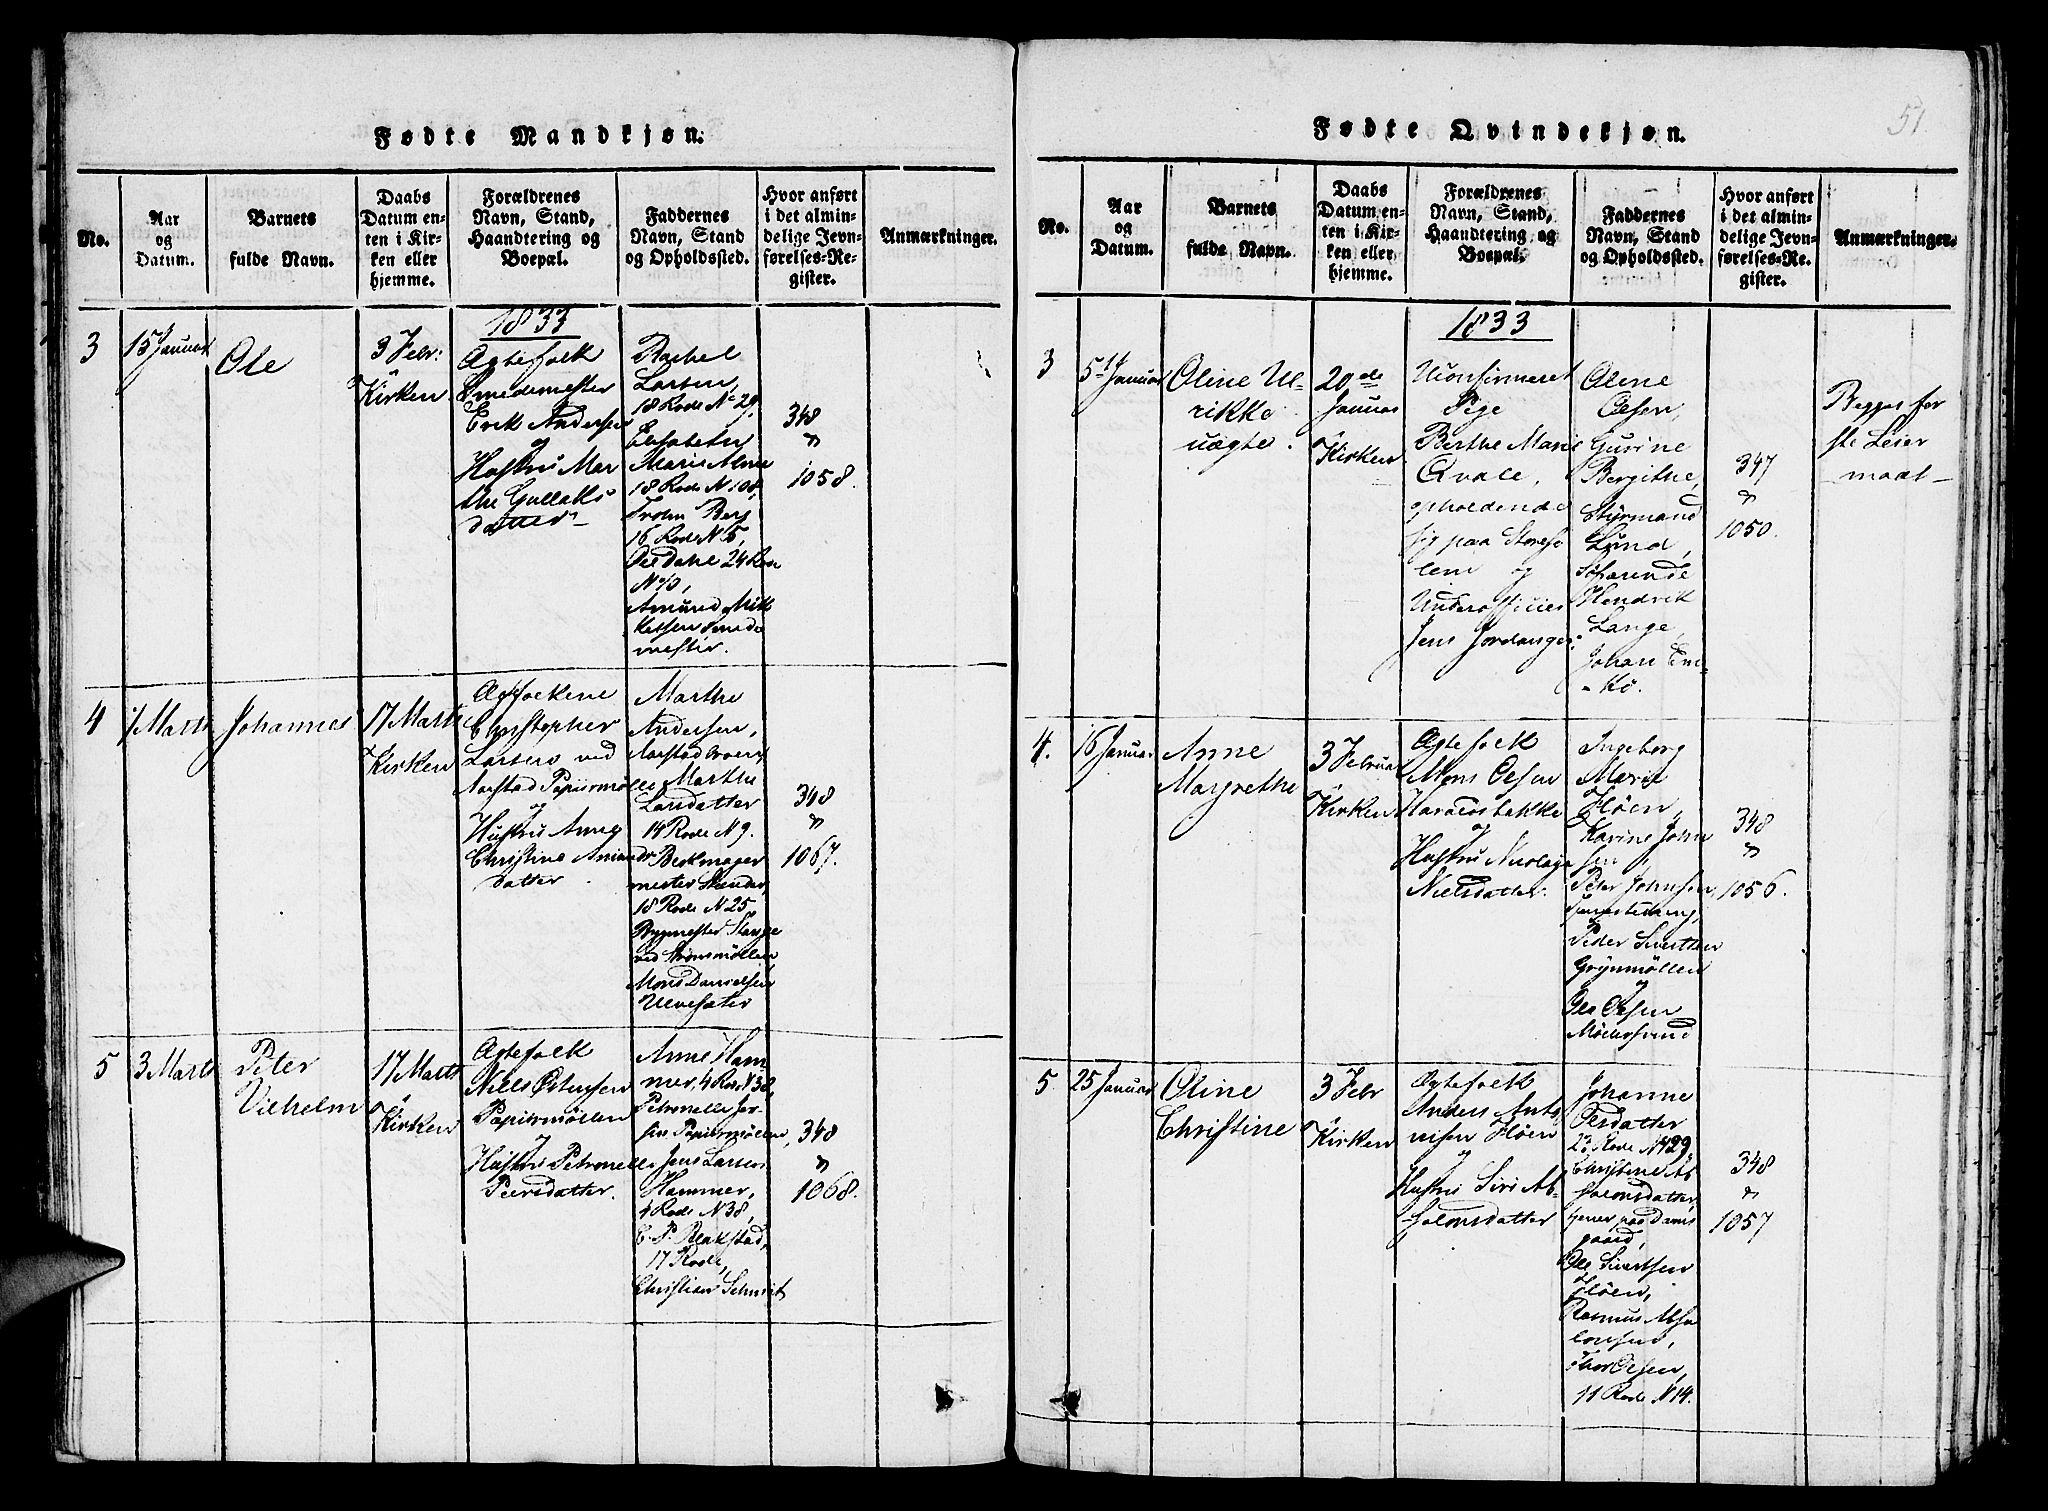 Fødte Mandkjøn.
No.
Aar
og
Datum.
Barnets
fulde Navn.
Daabs
Datum en-
ten i Kir-
ken eller
hjemme.
Forældrenes
Navn, Stand,
Haandtering og
Boepæl.
Faddernes
Navn, Stand
og Opholdssted.
Hvor anført
i det almin-
delige Jevn-
førelses-Re-
gister.
Anmærkninger.
1833
3
15 Januar
Ole
3 Febr:
i Kirken
Ægtefolk
Smedemester
Erik Andersen
og
Hustru Mar
the Gullaks
datter
Rachel
Larsen,
18 Rode No 29,
Elisabeth
Marie
18 Rode N 108,
Berg
16 Rode N 5,
Ole Dahl 24 Rode
N 10,
Amund Mik
kelsen Smede
mester.
348
1058.
4
Marts
Johannes
17 Marts
i Kirken
Christopher
Larsen ved
Aarstad Papiirmølle
og
Hustru Anne
Christine
datter
Marthe
Andersen,
Marthe
Larsdatter
14 Rode N 9.
mester
18 Rode N 25,
Bygmester Stange
ved
Mons Danielsen
Ulvesæter
348
1067.
5
3 Marts
Peter
Vilhelm
17 Marts
i Kirken
Ægtefolk
Niels
Papiirmøllen
og
Hustru Petronelle
Peersdatter.
Anne Ham
mer, 4 Rode N 38,
Petronelle
Papiirmøllen,
Jens Larsen
Hammer,
4 Rode N 38,
C. P. Blakstad,
17 Rode,
Christian Schmit
348
1068.
Fødte Qvindekjøn.
51.
No.
Aar
og
Datum.
Barnets
fulde Navn.
Daabs
Datum en-
ten i Kir-
ken eller
hjemme.
Forældrenes
Navn, Stand,
Haandtering og
Boepæl.
Faddernes
Navn, Stand
og Opholdssted.
Hvor anført
i det almin-
delige Jevn-
førelses-Re-
gister.
Anmærkninger.
1833
3
5 Januar
Oline Ul-
rikke
uægte.
20de
Januar
i Kirken
Uconfirmeret
Pige
Berthe Marie
Qvale,
opholdende
sig paa
og
Underofficier
Jens Jordanger.
Oline
Olsen,
Gurine
Bergithe,
Styrmand
Lund,
Søfarende
Hendrik
Lange,
Johan
347
1050.
Begges før
ste Leier
maal
4.
16 Januar
Anne
Margrethe
3 Februar
i Kirken
Ægtefolk
Mons Olsen
Haraldsbakke
og
Hustru
Nielsdatter.
Ingeborg
Marie
Fløen,
Karine John
sen,
Peter Johnsen,
Peder Sivertsen
Grynmøllen
og
Ole Olsen
348
1056.
5
25 Januar
Oline
Christine
3 Febr
i Kirken
Ægtefolk
Anders
Fløen
og
Hustru Siri Ab-
salonsdatter
Johanne
Olsdatter
23 Rode N 129,
Christine Ab
salonsdatter,
tjener paa Dams
gaard,
Ole Sivertsen
Fløen,
Rasmus Absa
lonsen,
Olsen,
11 Rode N 14.
348
1057